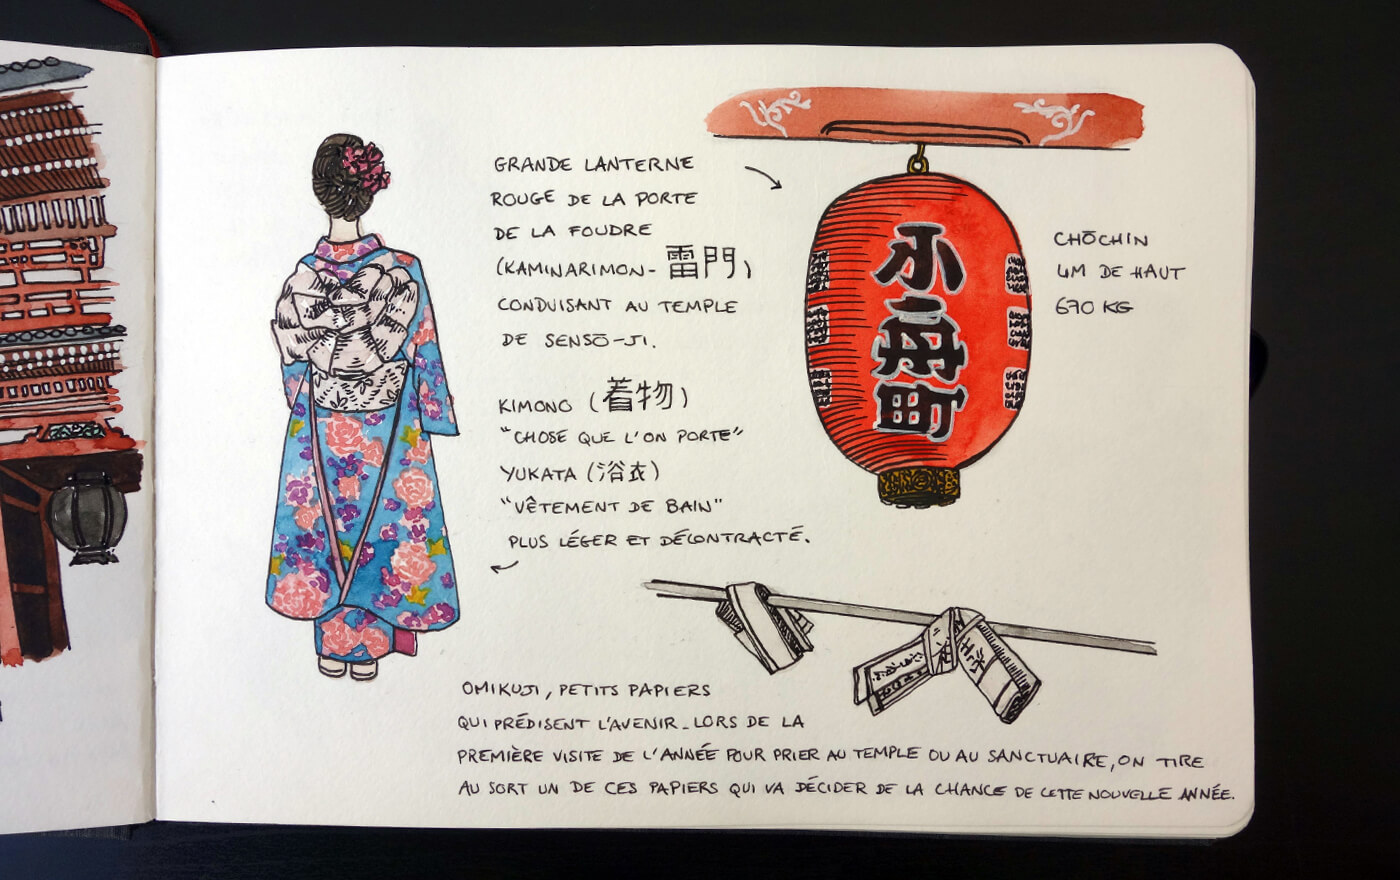 GRANDE LANTERNE
ROUGE DE LA PORTE
DE LA FOUDRE
(KAMINARIMON - 雷門)
CONDUISANT AU TEMPLE
DE SENSŌ-JI.
小舟町
CHŌCHIN
4M DE HAUT
670 KG
KIMONO (着物)
"CHOSE QUE L'ON PORTE"
YUKATA (浴衣)
"VÊTEMENT DE BAIN"
PLUS LÉGER ET DÉCONTRACTÉ.
OMIKUJI, PETITS PAPIERS
QUI PRÉDISENT L'AVENIR - LORS DE LA
PREMIÈRE VISITE DE L'ANNÉE POUR PRIER AU TEMPLE OU AU SANCTUAIRE, ON TIRE
AU SORT UN DE CES PAPIERS QUI VA DÉCIDER DE LA CHANCE DE CETTE NOUVELLE ANNÉE.